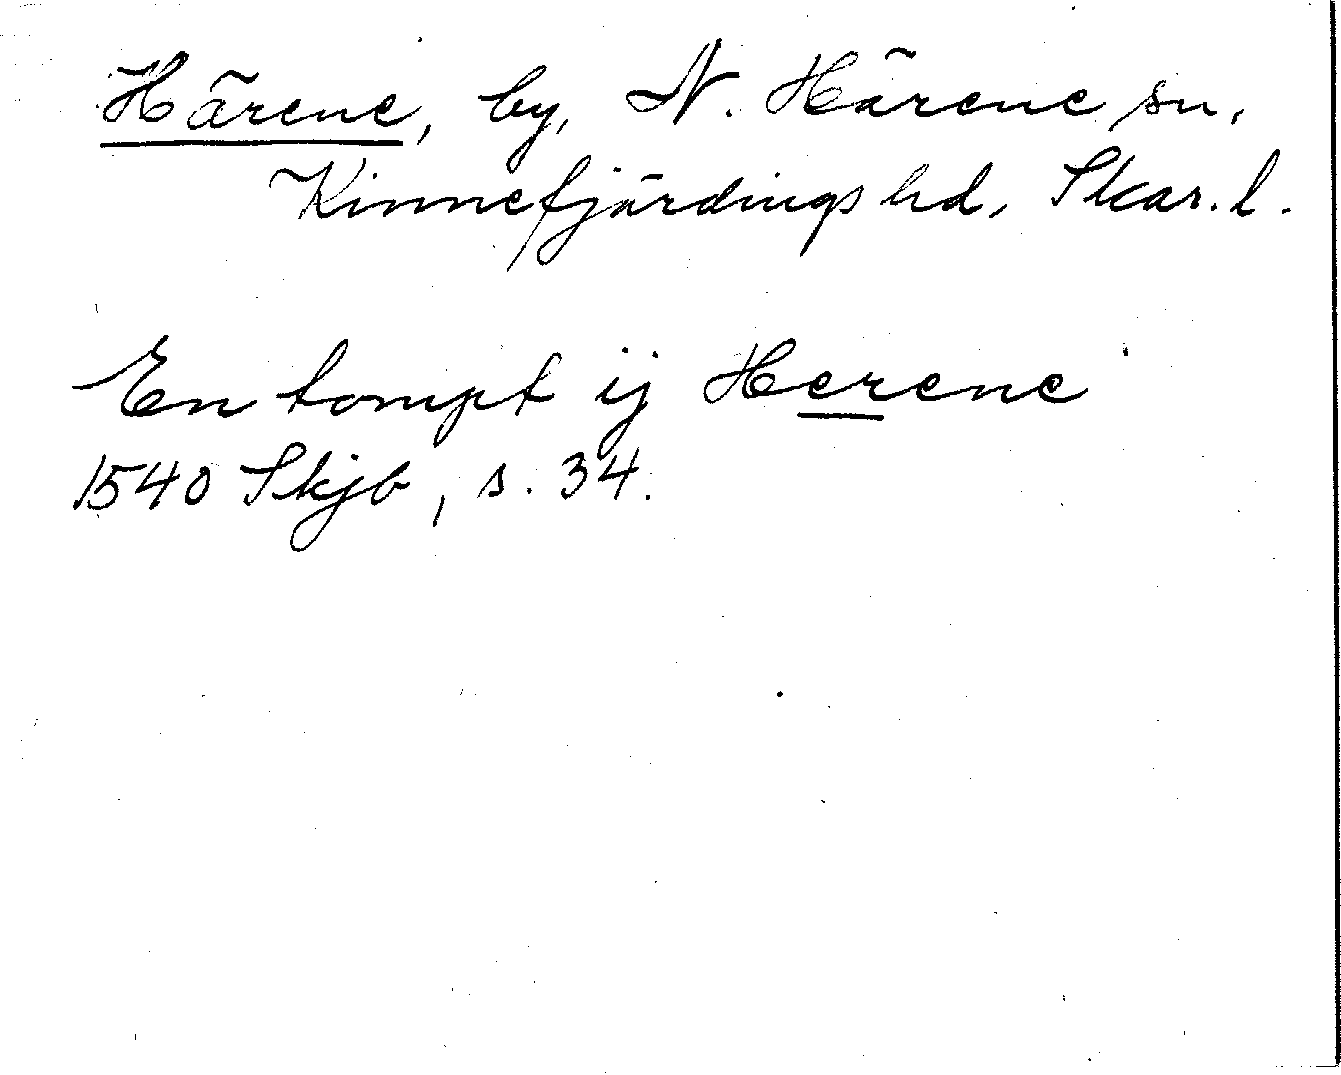 Härene, by, N. Härene sn,
Kinnefjärdings hd, Skar. l.
En tompt ij Herene
1540 Skjb, s. 34.